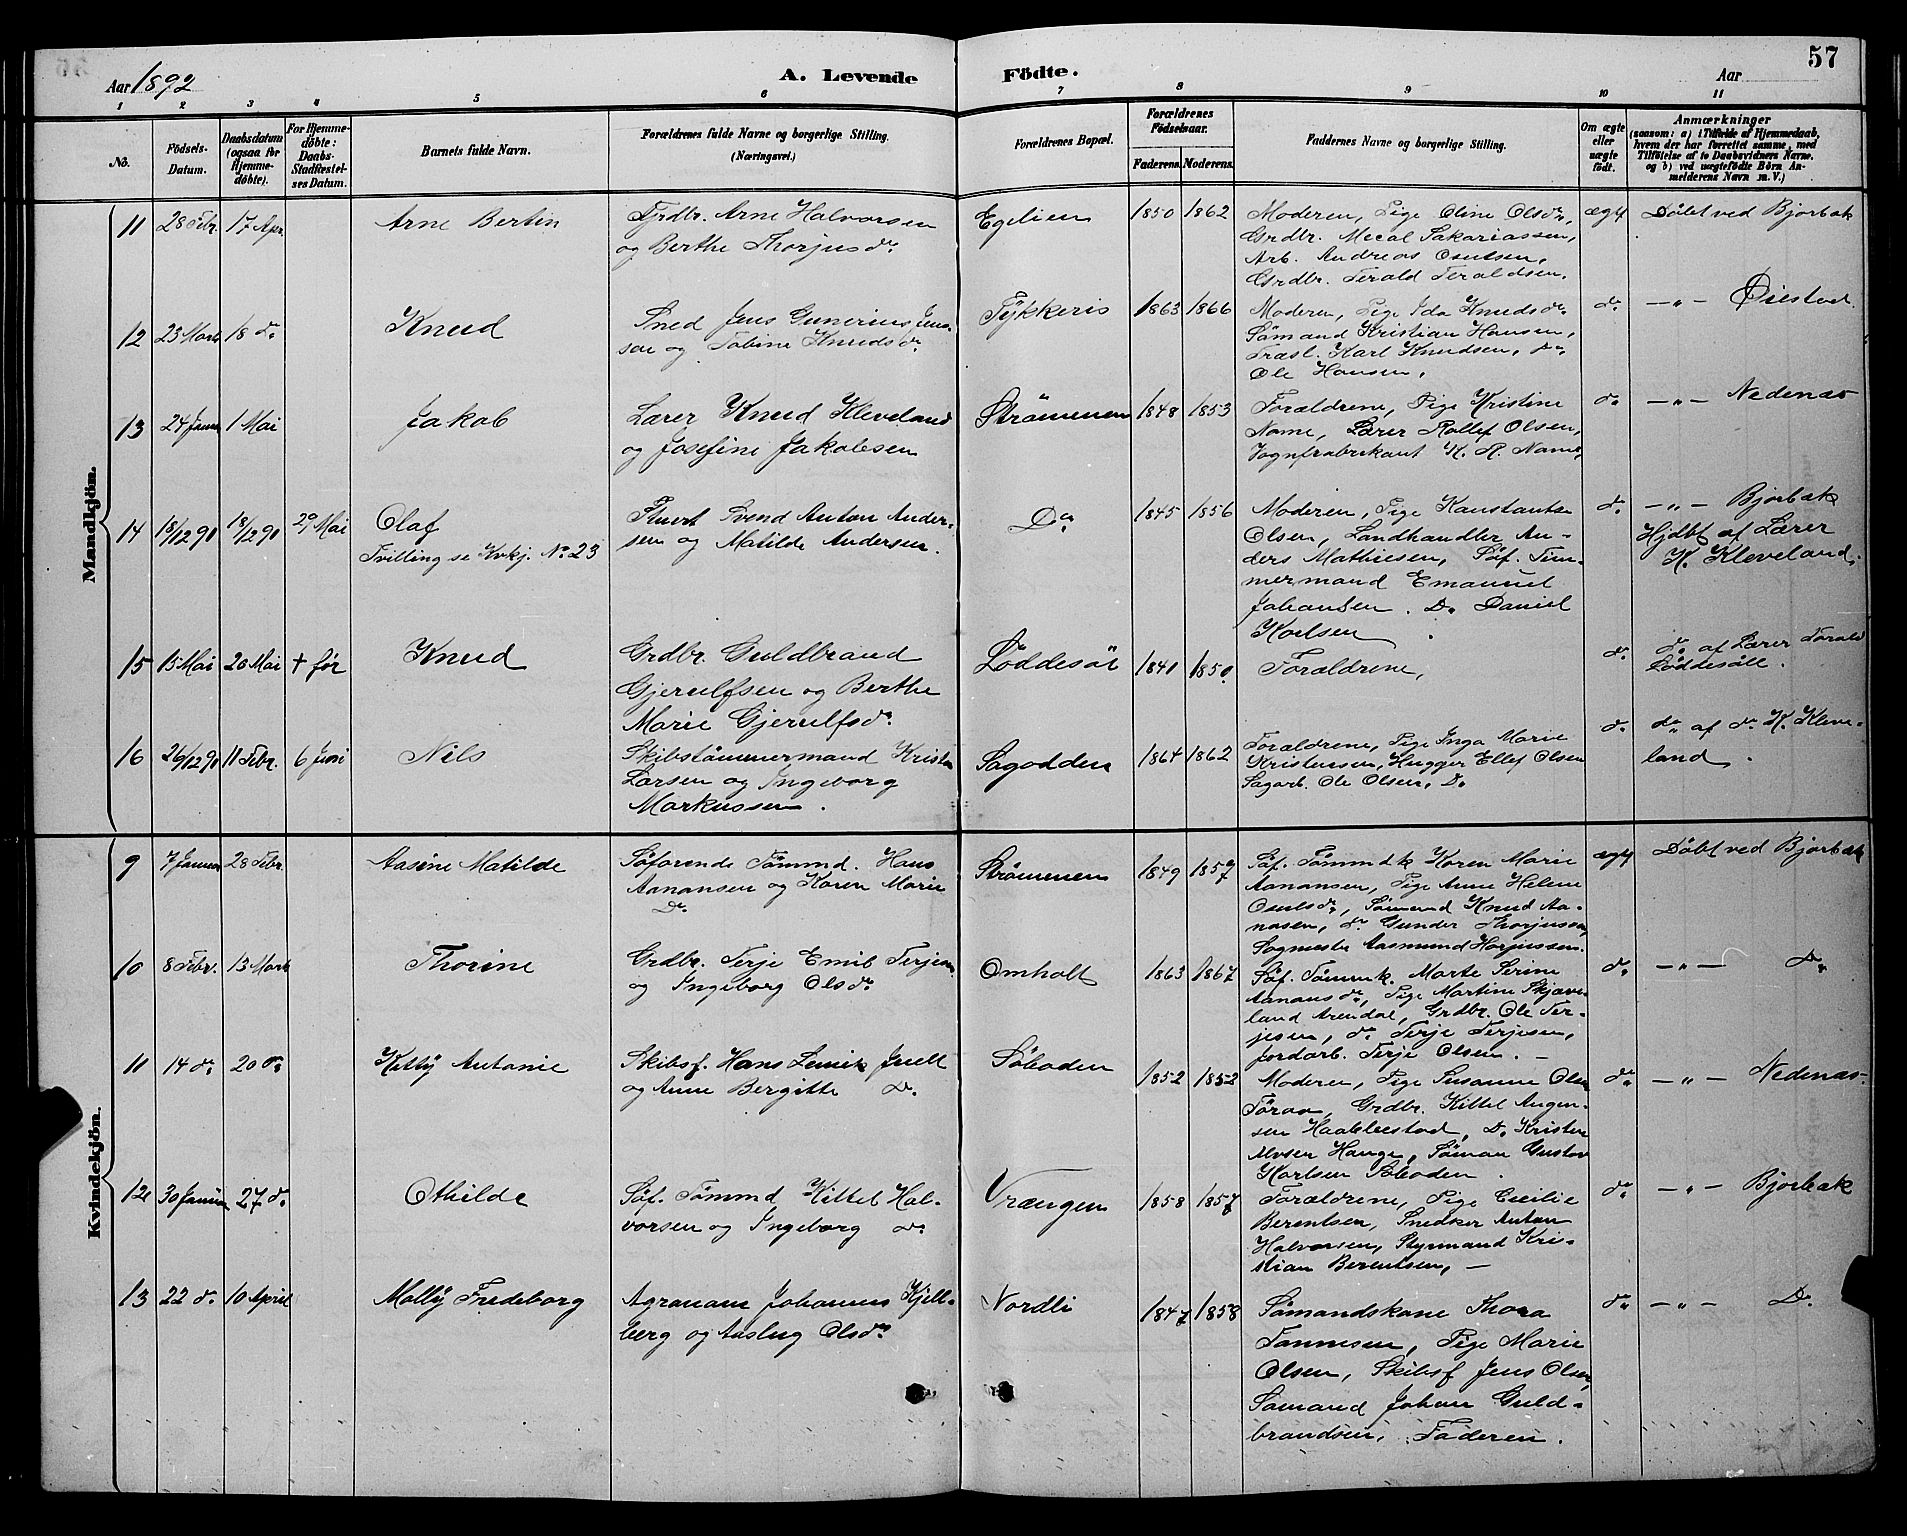 57
Aar 1892
A. Levende Födte.
Aar
1 2 3 4 5 6 7 8 9 10 11
No.
Födsels-Datum.
Daabsdatum (ogsaa for Hjemme-döbte).
For Hjemme-döbte: Daabs-Stadfæstel-ses Datum.
Barnets fulde Navn.
Forældrenes fulde Navne og borgerlige Stilling. (Næringsvei.)
Forældrenes Bopæl.
Forældrenes Födselsaar.
Faderens. Moderens.
Faddernes Navne og borgerlige Stilling.
Om ægte eller uægte födt.
Anmærkninger
(saasom: a) i Tilfælde af Hjemmedaab, hvem der har forrettet samme, med Tilföielse af to Daabsvidners Navne, og b) ved uægtefödte Börn An-melderens Navn m. V.)
Mandkjön.
11 28 Febr. 17 Apr. Arne Bertin
Arne Halvorsen
og Berthe Thorjusdr.
Egelien 1850 1862
Moderen, Pige Oline Olsdr,
Grdbr. Mecal Sakariassen,
Arb. Andreas Osulsen,
Grdbr. Terald Teraldsen.
ægt Döbt ved Bjorbæk
12 23 Marts 18 do. Knud
Sned Jens Gunerius Jen-
sen og Tobine Knudsdr
1863 1866
Moderen, Pige Ida Knudsdr
Sömand Kristian Hansen,
Karl Knudsen, do,
Ole Hansen,
do. —„— Öiestad.
13 24 Januar 1 Mai Jakob
Lærer Knud Kleveland
og Josefine Jakobsen
Strömmen 1848 1853
Forældrene, Pige Kristine
Name, Lærer Rollef Olsen,
Vognfabrikant K. R. Name,
do —„— Nedenæs
14 18/12 90 18/12 90 29 Mai Olaf
Tvilling se Kvkj. No 23
Stuert Svend Anton Ander-
sen og Matilde Andersen.
Do 1845 1856
Moderen, Pige Konstantse
Olsen, Landhandler An-
ders Mathiesen, Söf. Tim-
mermand Emanuel
Johansen. Do Daniel
Karlsen.
do —„— Bjorbæk
Hjdbt af Lærer
K. Kleveland.
15 15 Mai 20 Mai † før Knud
Grdbr. Guldbrand
Gjerulfsen og Berthe
Marie Gjerulfsdr.
Löddesöl 1841 1850
Forældrene,
do. do af Lærer Torald
Löddesölle.
16 26/12 90 11 Febr. 6 Juni Nils
Skibstömmermand Kristen
Larsen og Ingeborg
Markussen.
Sagodden 1864 1862
Forældrene, Pige Inga Marie
Kristensen, Hugger Ellef Olsen
Sagarb. Ole Olsen, Do
do do af do. K. Kleve-
land.
Kvindekjön.
9 7 Januar 28 Febr. Aasine Matilde
Söfarende Tömmd. Hans
Aanansen og Karen Marie
Do
Strömmen 1849 1857
Söf. Tömmdk Karen Marie
Aanansen, Pige Anne Helene
Osulsdr, Sömand Knud Aa-
nasen, do Gunder Thorjussen,
Aasmund
ægt Döbt ved Bjorbæk
10 8 Febr. 13 Marts Thorine
Grdbr. Terje Emil Terjesen
og Ingeborg Olsdr
Omholt 1863 1867
Söf. Tömmk. Marte Serine
Aanansdr, Pige Martine Skjæve-
land Arendal, Grdbr. Ole Ter-
jesen, do Terje Terjesen,
Jordarb. Terje Olsen. —
do —„— Do
11 14 do 20 do Kitty Antonie
Skibsf. Hans Juell
og Anne Bergitte Do.
Söboden 1852 1852
Moderen, Pige Susanne Olsen
Grdbr. Kittel Aagen-
sen Do Kristen
Hauge, Sömand Gustav
Karlsen Söboden.
do —„— Nedenæs.
12 30 Januar 27 do Othilde
Söf. Tömmd Kittel Hal-
vorsen og Ingeborg do
Vrængen 1858 1857
Forældrene, Pige Cecilie
Berentsen, Snedker Anton
Halvorsen, Styrmand Kris-
tian Berentsen, —
do —„— Bjorbæk
13 22 do. 10 April Molly Fredeborg
Agronom Johannes Kjell-
berg og Aaslug Olsdr
Nordli 1847 1858
Sömandskone Thora
Tønnesen, Pige Marie
Olsen, Skibsf Jens Olsen,
Sömand Johan Guld-
brandsen, Faderen.
do —„— Do